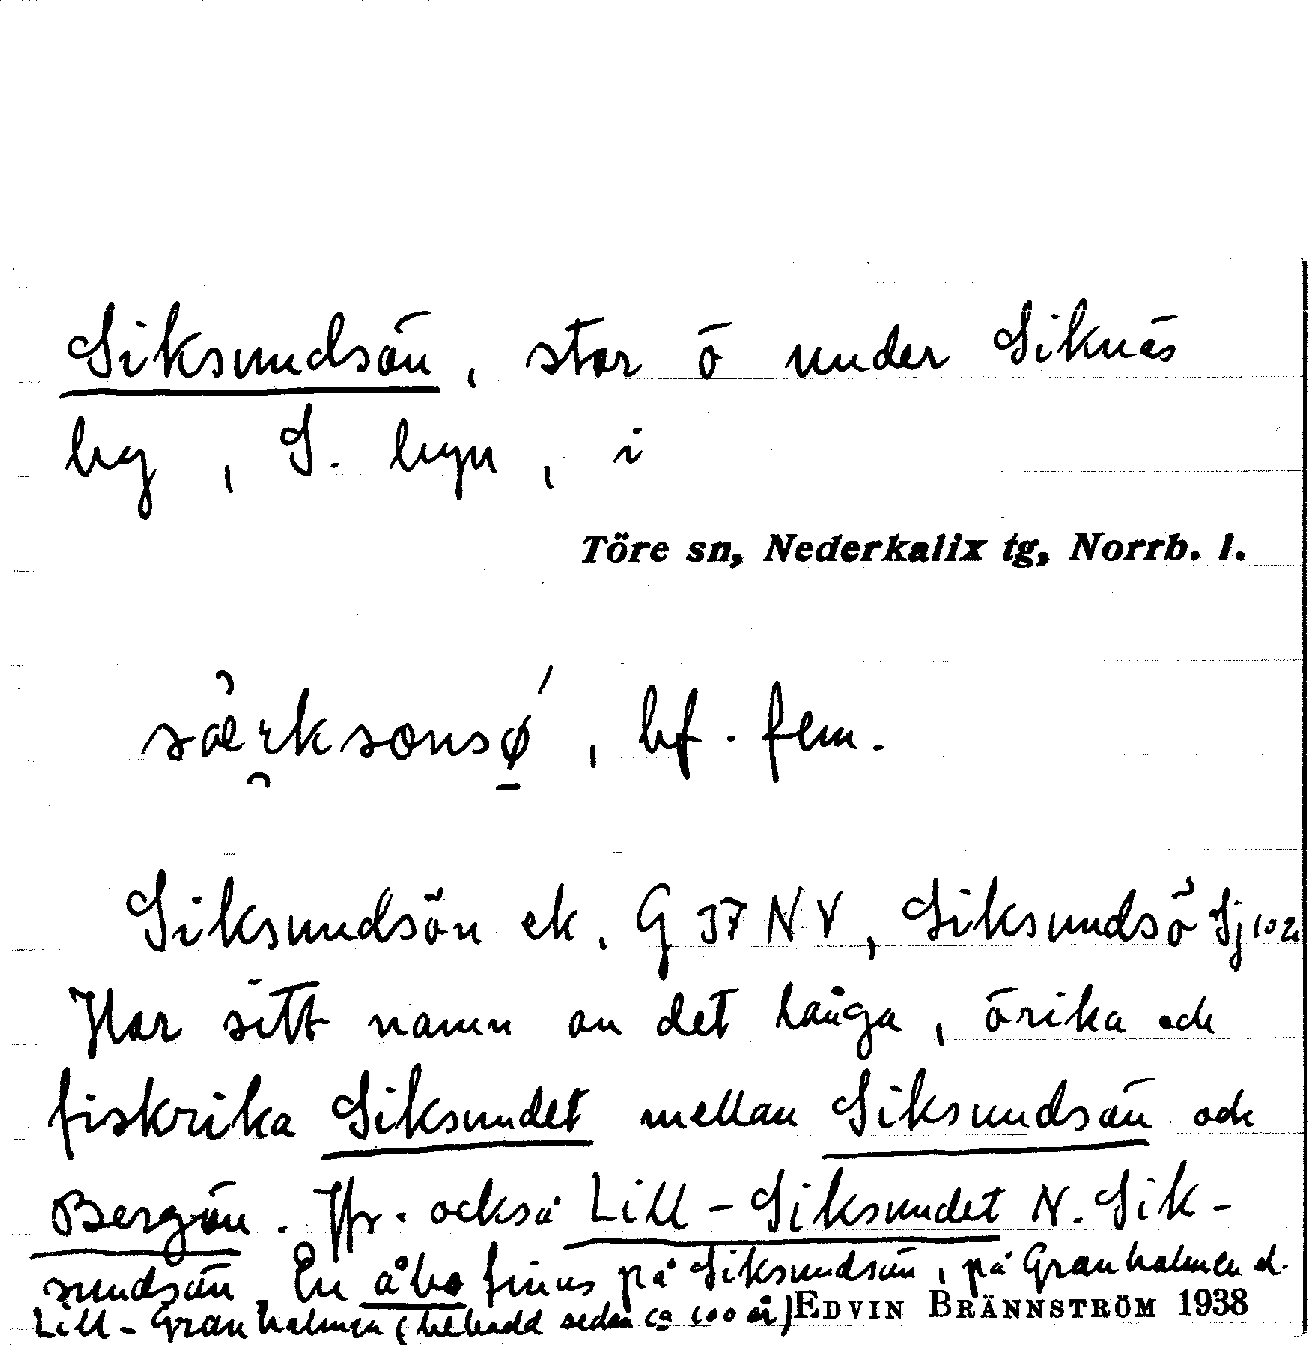 Siksundsön, stor ö under Siknäs
by, S. byn, i
Töre sn, Nederkalix tg, Norrb. l.
bf. fem.
Siksundsön ek. G 37 NV, Siksundsö Sj 102
Har sitt namn av det långa, örika och
fiskrika Siksundet mellan Siksundsön och
Bergön. Jfr. också Lill-Siksundet N. Sik-
sundsön. En åbo finns på Siksundsön, på Granholmen el.
Lill-Granholmen (bebodd sedan ca 100 år)
EDVIN BRÄNNSTRÖM 1938